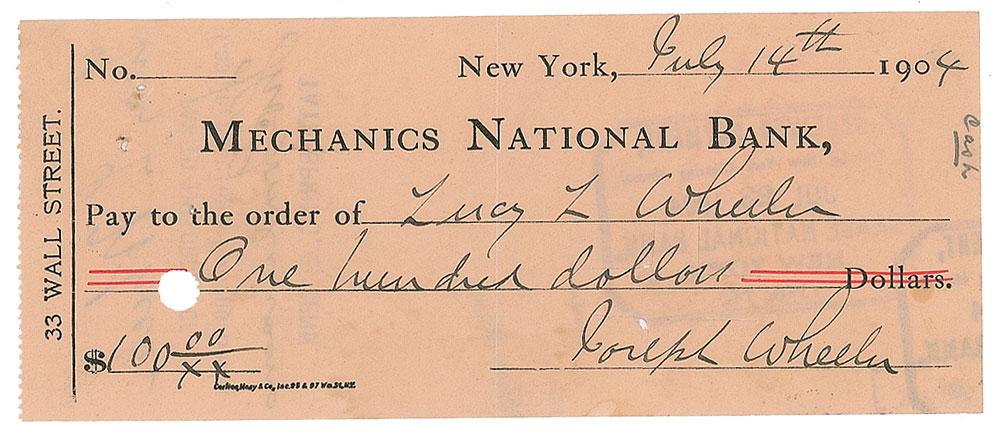 No.
New York, July 14th 1904
Cash
33 WALL STREET.
MECHANICS NATIONAL BANK,
Pay to the order of Lucy L Wheeler
One hundred dollars Dollars.
$100 00/xx
Joseph Wheeler